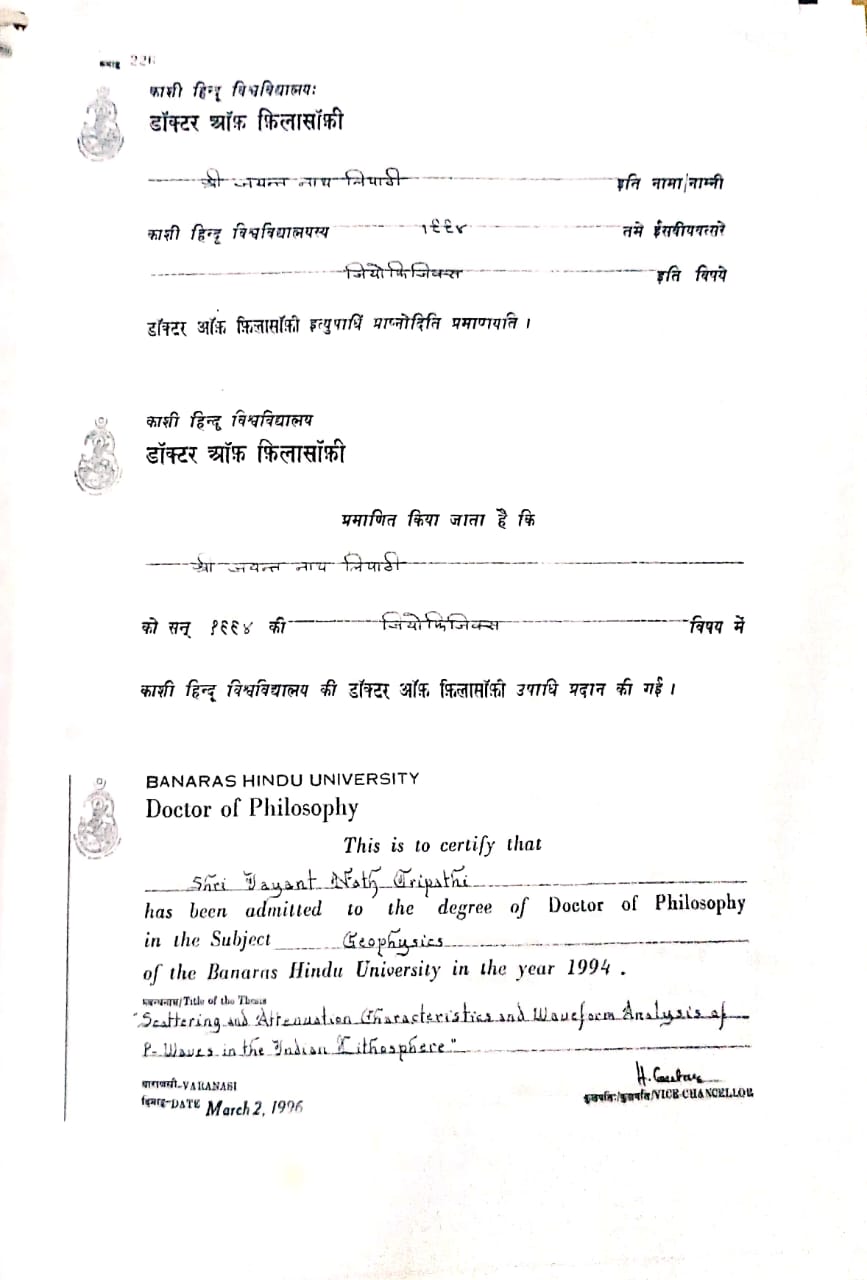 क्रमाङ्क 226
काशी हिन्दू विश्वविद्यालयः
डॉक्टर ऑफ़ फ़िलासॉफ़ी
श्री जयन्त नाथ त्रिपाठी इति नामा/नाम्नी
काशी हिन्दू विश्वविद्यालयस्य १९९४ तमे ईसवीयवत्सरे
जियोफिजिक्स इति विषये
डॉक्टर ऑफ़ फ़िलासॉफ़ी इत्युपाधिं प्राप्नोदिति प्रमाणयति ।
काशी हिन्दू विश्वविद्यालय
डॉक्टर ऑफ़ फ़िलासॉफ़ी
प्रमाणित किया जाता है कि
श्री जयन्त नाथ त्रिपाठी
को सन् १९९४ की जियोफिजिक्स विषय में
काशी हिन्दू विश्वविद्यालय की डॉक्टर ऑफ़ फ़िलासॉफ़ी उपाधि प्रदान की गई ।
BANARAS HINDU UNIVERSITY
Doctor of Philosophy
This is to certify that
Shri Jayant Nath Tripathi
has been admitted to the degree of Doctor of Philosophy
in the Subject Geophysics
of the Banaras Hindu University in the year 1994 .
प्रबन्धनाम/Title of the Thesis
"Scattering and Attenuation Characteristics and Waveform Analysis of
P-Waves in the Indian Lithosphere"
वाराणसी-VARANASI
दिनाङ्क-DATE March 2, 1996
कुलपतिः/कुलपति/VICE-CHANCELLOR